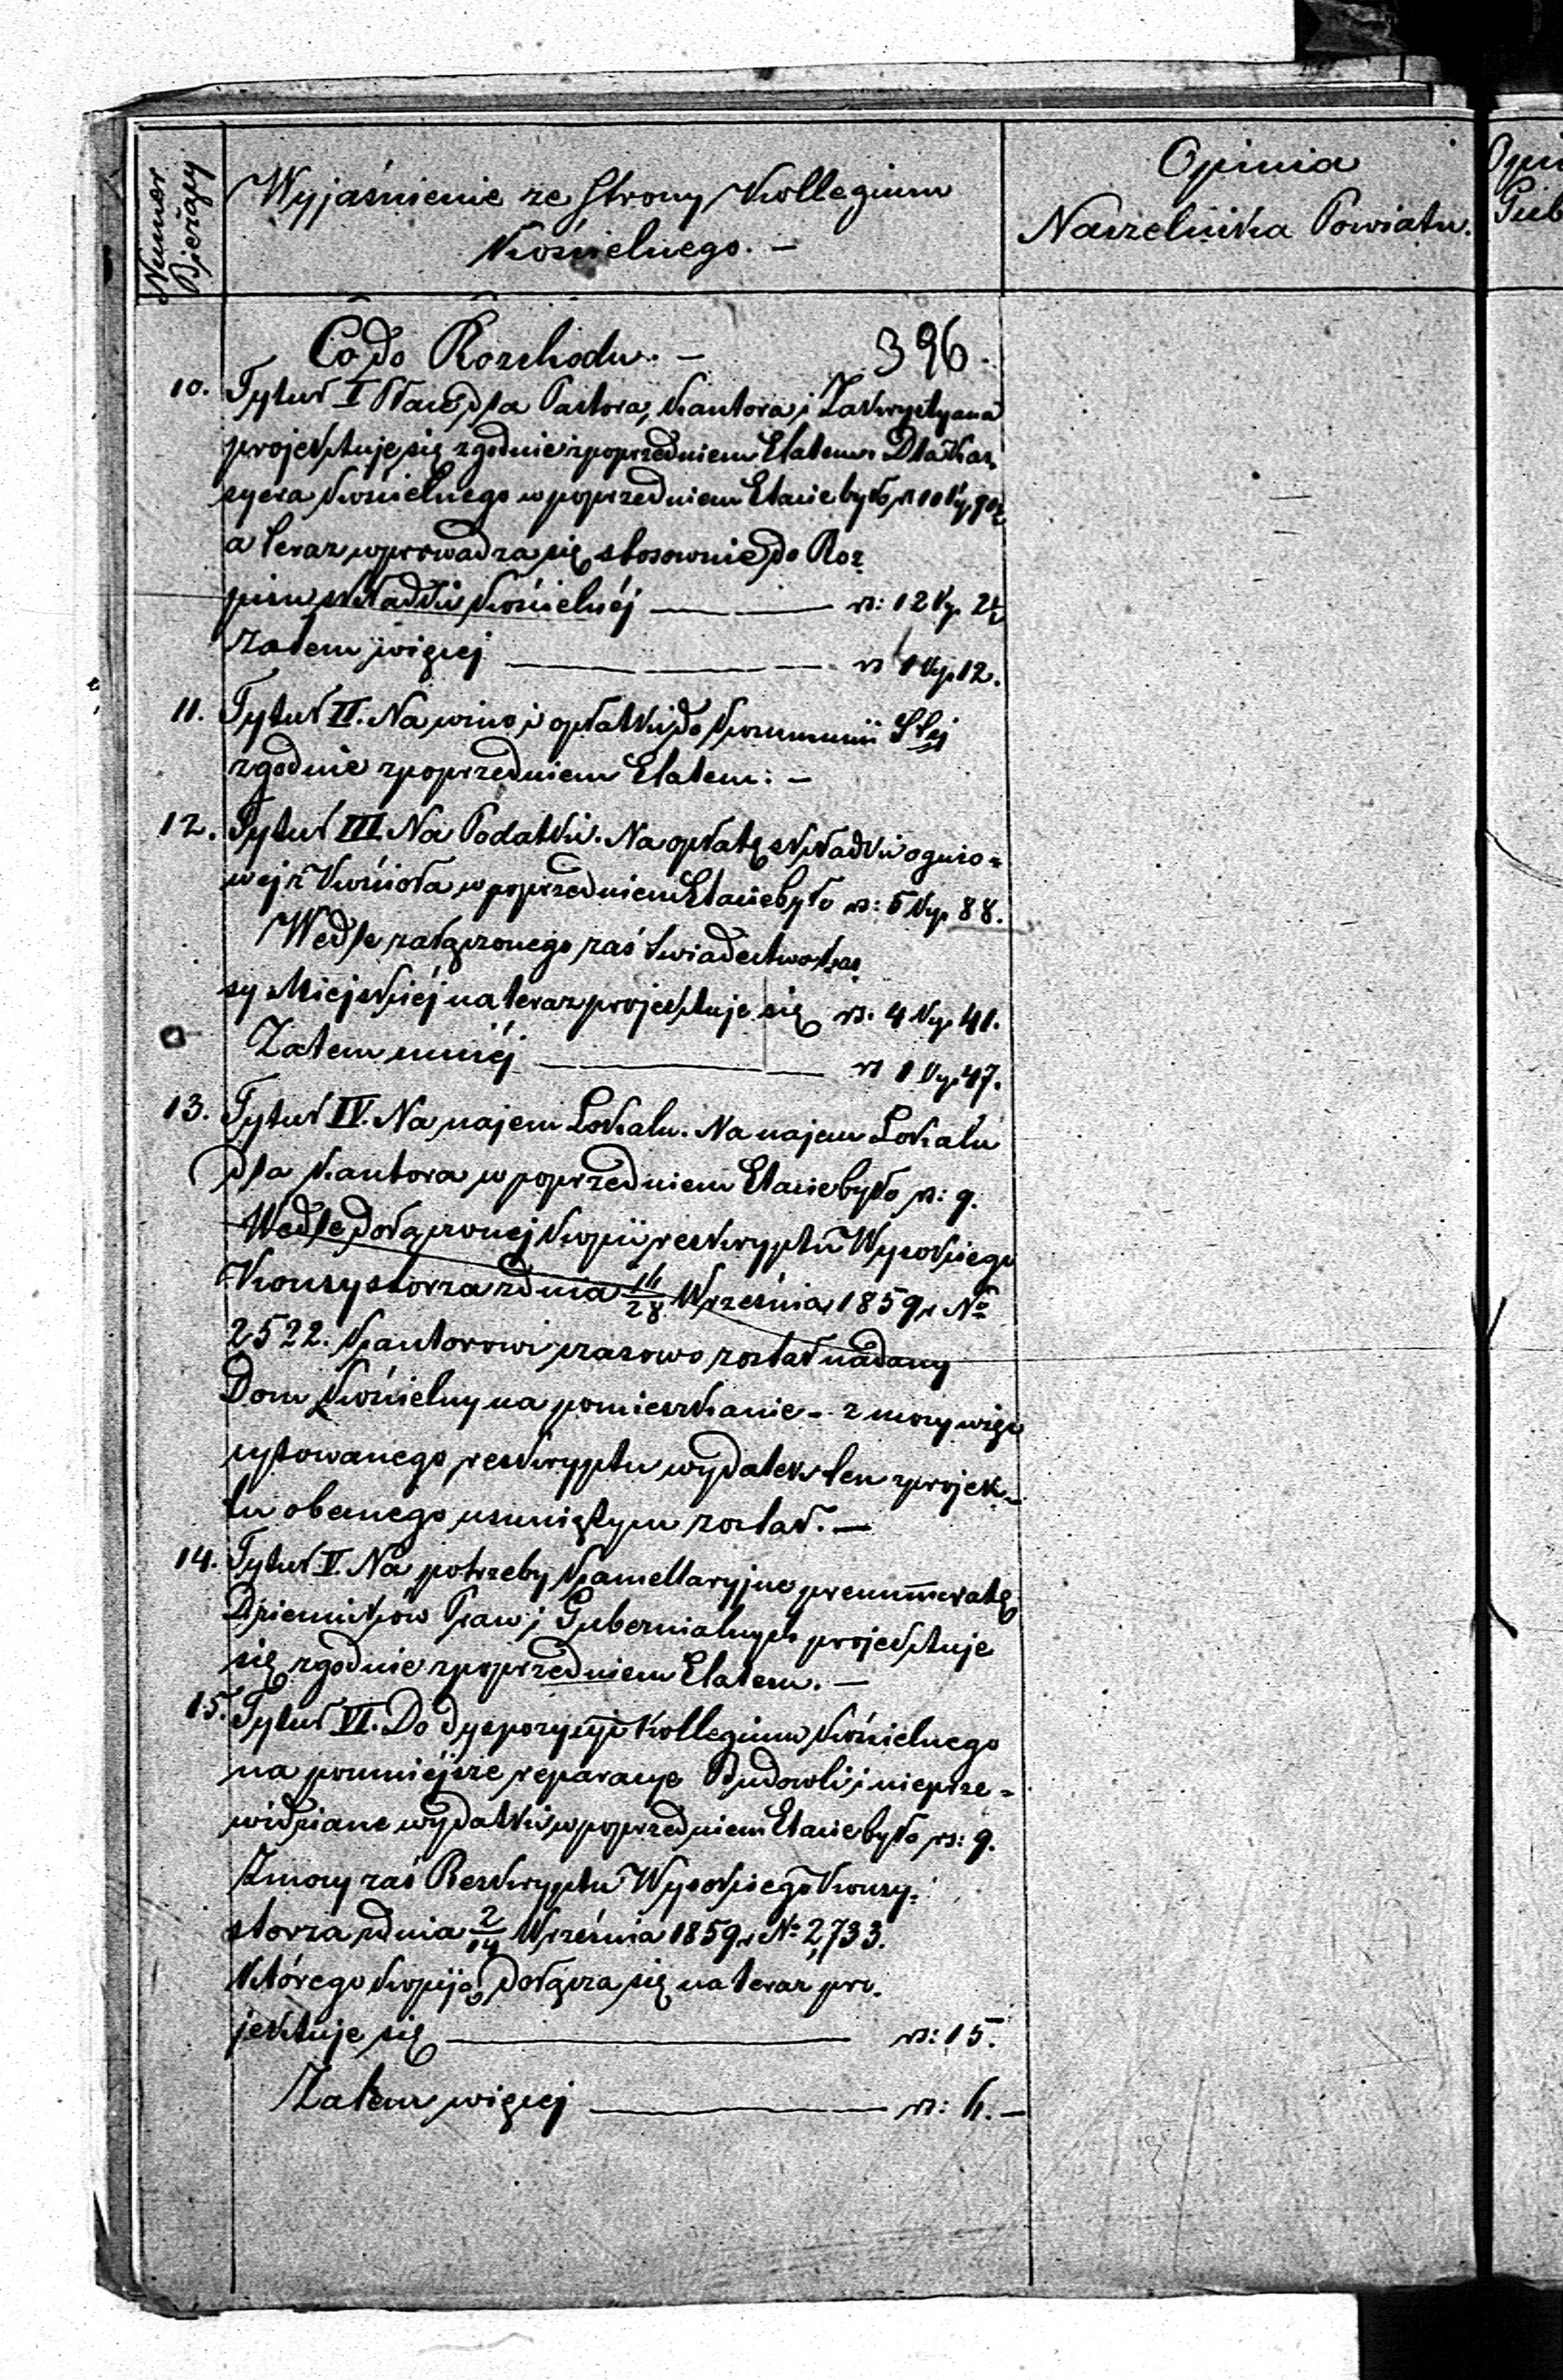 Numer
Bieżący
Wyjaśnienie ze strony Kollegium
Kościelnego. —
Opinia
Naczelnika Powiatu.
Opi
Gub
Co do Rozchodu. —
396.
10. Tytuł I Płace dla Pastora, Kantora i Zakrystyana
projektuje się zgodnie z poprzedniem Etatem. Dla Kas-
syera Kościelnego w poprzedniem Etacie było rs 10 kp. 90½
a teraz wprowadza się stosownie do Roz-
pisu składki Kościelnéj — rs: 12 kp. 2½
zatem więcej — rs 1 kp. 12.
11. Tytuł II. Na wino i opłatki do Kommunii Stej
zgodnie z poprzedniem Etatem: —
12. Tytuł III. Na Podatki. Na opłatę składki ognio=
wej z Kościoła w poprzedniem Etacie było rs: 5 kp. 88.
Wedle załączonego zaś świadectwa Kas=
sy Miejskiéj na teraz projektuje się rs. 4 kp. 41.
Zatem mniéj — rs 1 kp. 47.
13. Tytuł IV. Na najem Lokalu. Na najem Lokalu
dla Kantora w poprzedniem Etacie było rs: 9.
Wedle dołączonej kopii reskryptu Wysokiego
Konsystorza z dnia 16/28 Września 1859 r. No
2522. Kantorowi czasowo został nadany
Dom Kościelny na pomieszkanie – z mocy więc
cytowanego reskryptu wydatek ten z projek=
tu obecnego usuniętym został. —
14. Tytuł V. Na potrzeby Kancellaryjne prenumeratę
Dzienników Praw i Gubernialnych projektuje
się zgodnie z poprzedniem Etatem. —
15. Tytuł VI. Do dyspozycyi Kollegium Kościelnego
na pomniejsze reparacye Budowli i nieprze=
widziane wydatki w poprzedniem Etacie było rs: 9.
Z mocy zaś Reskryptu Wysokiego Konsy=
storza z dnia 2/14 Września 1859 r. No 2,733.
którego kopiją dołącza się na teraz pro-
jektuje się — rs: 15.
Zatem więcej — rs: 6. —